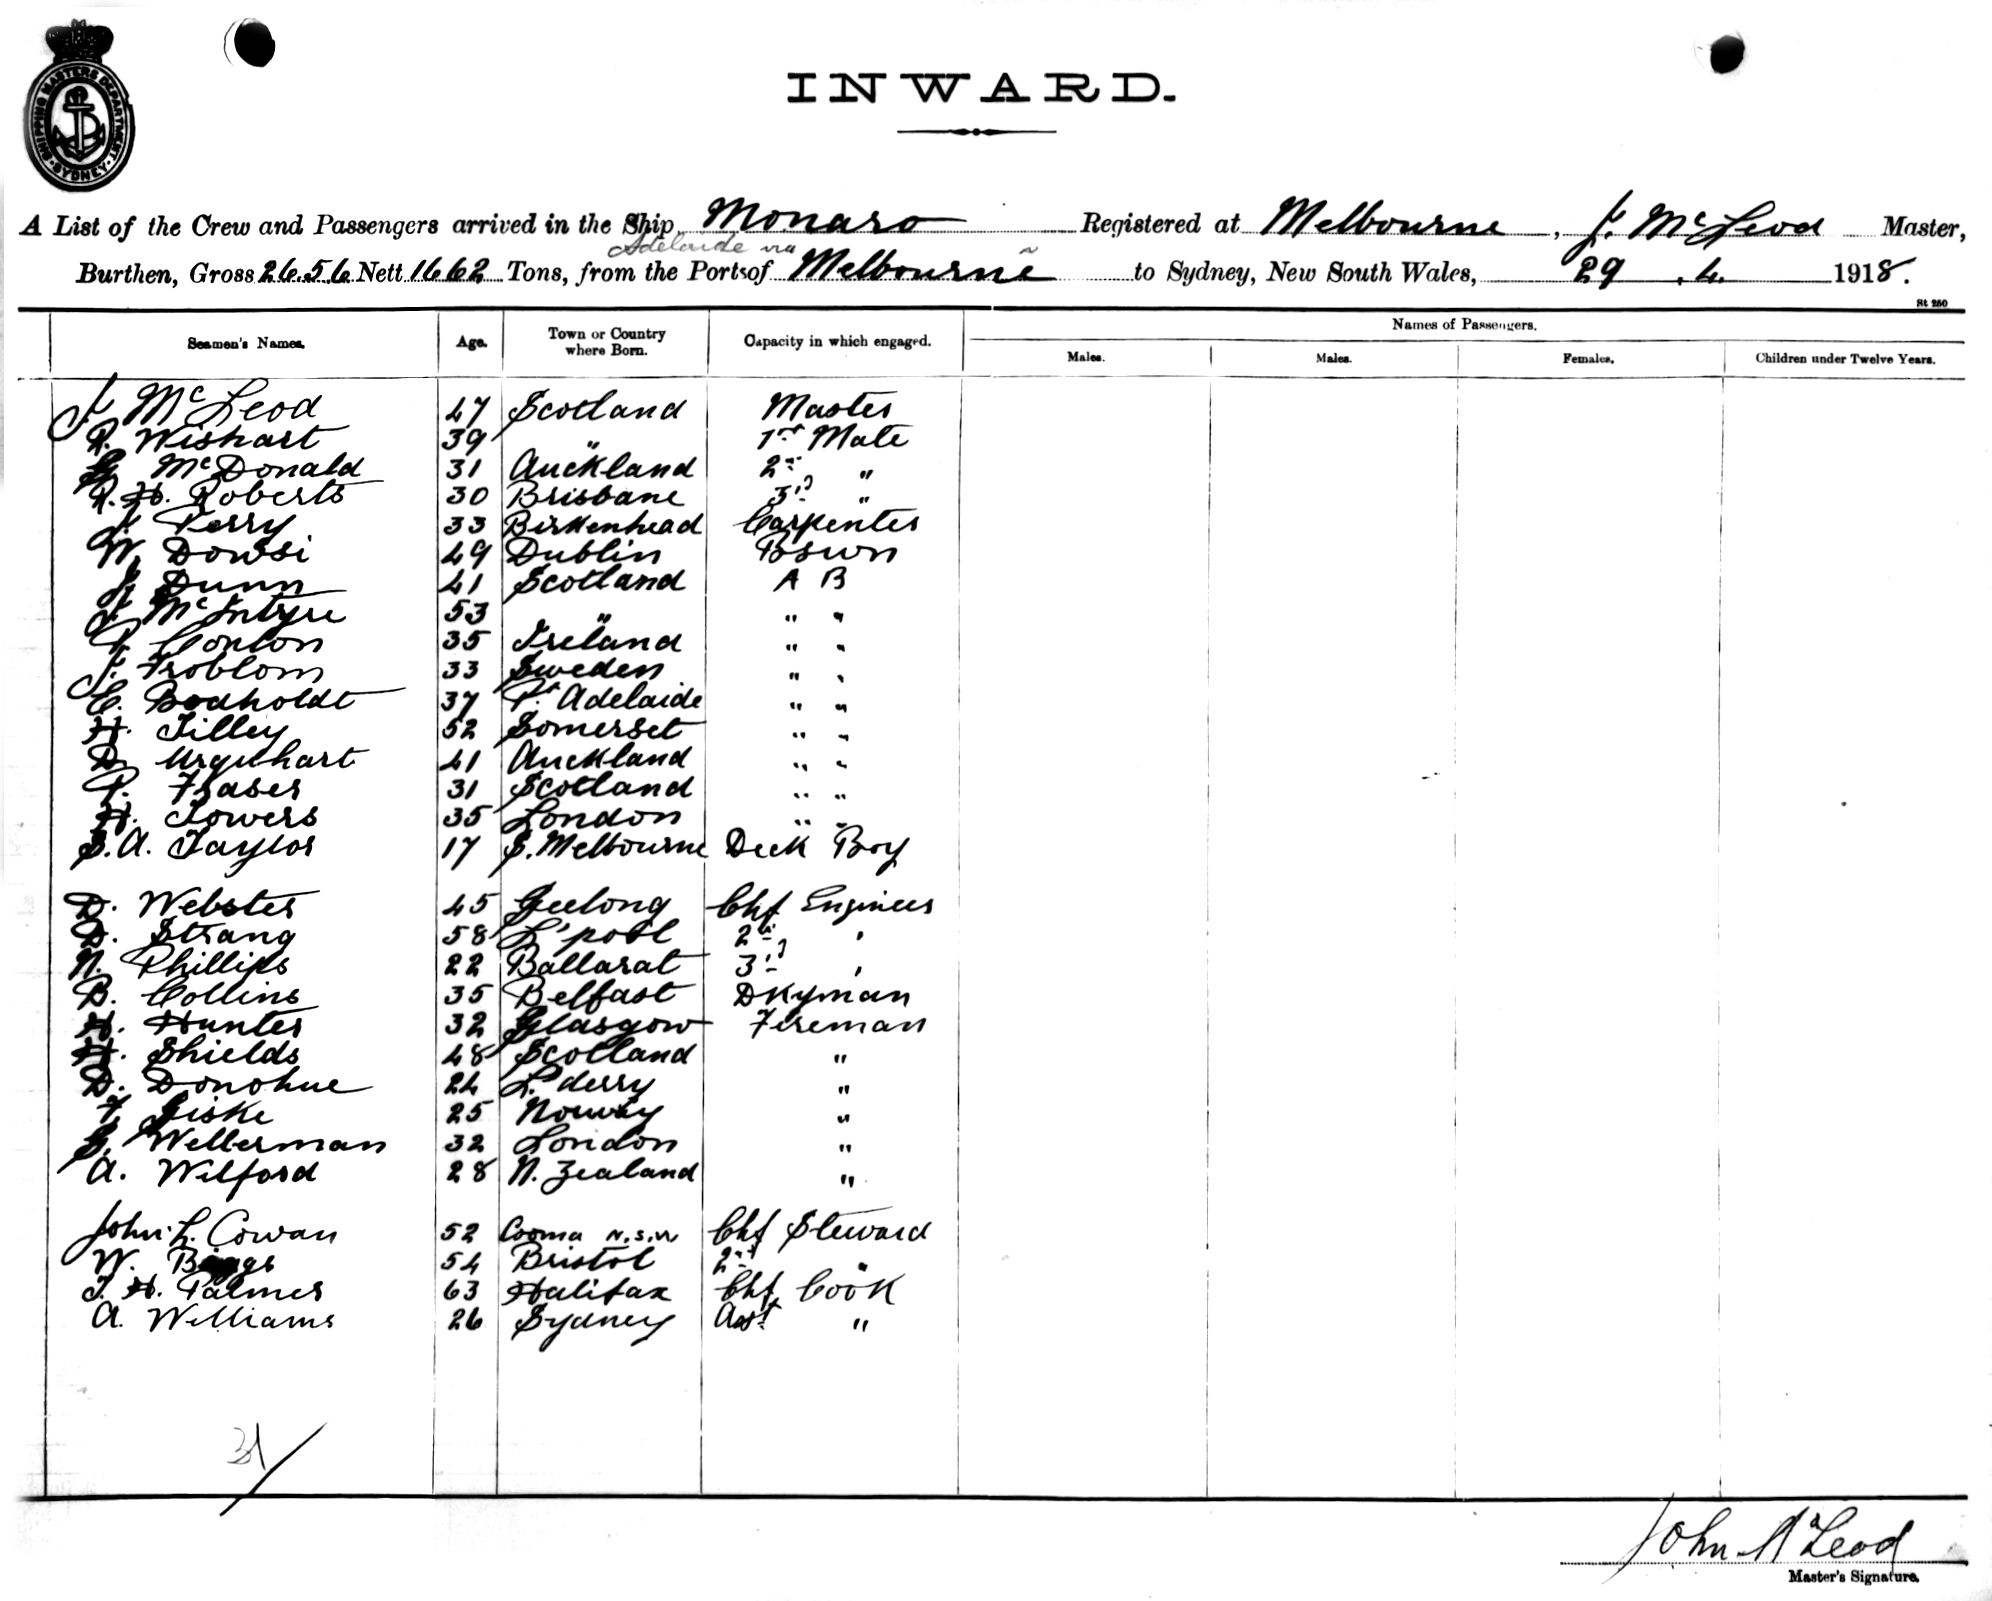 SHIPPING MASTERS DEPARTMENT
SYDNEY
INWARD.
A List of the Crew and Passengers arrived in the Ship Monaro Registered at Melbourne, J. McLeod Master,
Adelaide via
Burthen, Gross 2656 Nett 1662 Tons, from the Ports of Melbourne to Sydney, New South Wales, 29 . 4. 1918.
St 250
Seamen's Names. Age. Town or Country where Born. Capacity in which engaged. Names of Passengers.
Males. Males. Females. Children under Twelve Years.
J. McLeod 47 Scotland Master
R. Wishart 39 " 1st Mate
G. McDonald 31 Auckland 2nd "
R. H. Roberts 30 Brisbane 3rd "
J. Perry 33 Birkenhead Carpenter
W. Dowsi 49 Dublin Bswn
J. Dunn 41 Scotland A B
J. McIntyre 53 " " "
P. Conlon 35 Ireland " "
J. Froblom 33 Sweden " "
C. Bodholdt 37 Pt Adelaide " "
H. Tilley 52 Somerset " "
D. Urquhart 41 Auckland " "
P. Fraser 31 Scotland " "
H. Towers 35 London " "
S. A. Taylor 17 S. Melbourne Deck Boy
D. Webster 45 Geelong Chf Engineer
D. Strang 58 L'pool 2nd "
N. Phillips 22 Ballarat 3rd "
B. Collins 35 Belfast Dkyman
H. Hunter 32 Glasgow Fireman
H. Shields 48 Scotland "
D. Donohue 24 L. derry "
F. Giske 25 Norway "
G. Wellerman 32 London "
A. Wilford 28 N. Zealand "
John L. Cowan 52 Cooma N.S.W Chf Steward
W. Biggs 54 Bristol 2nd "
T. H. Palmer 63 Halifax Chf Cook
A. Williams 26 Sydney Asst "
31
John McLeod
Master's Signature.